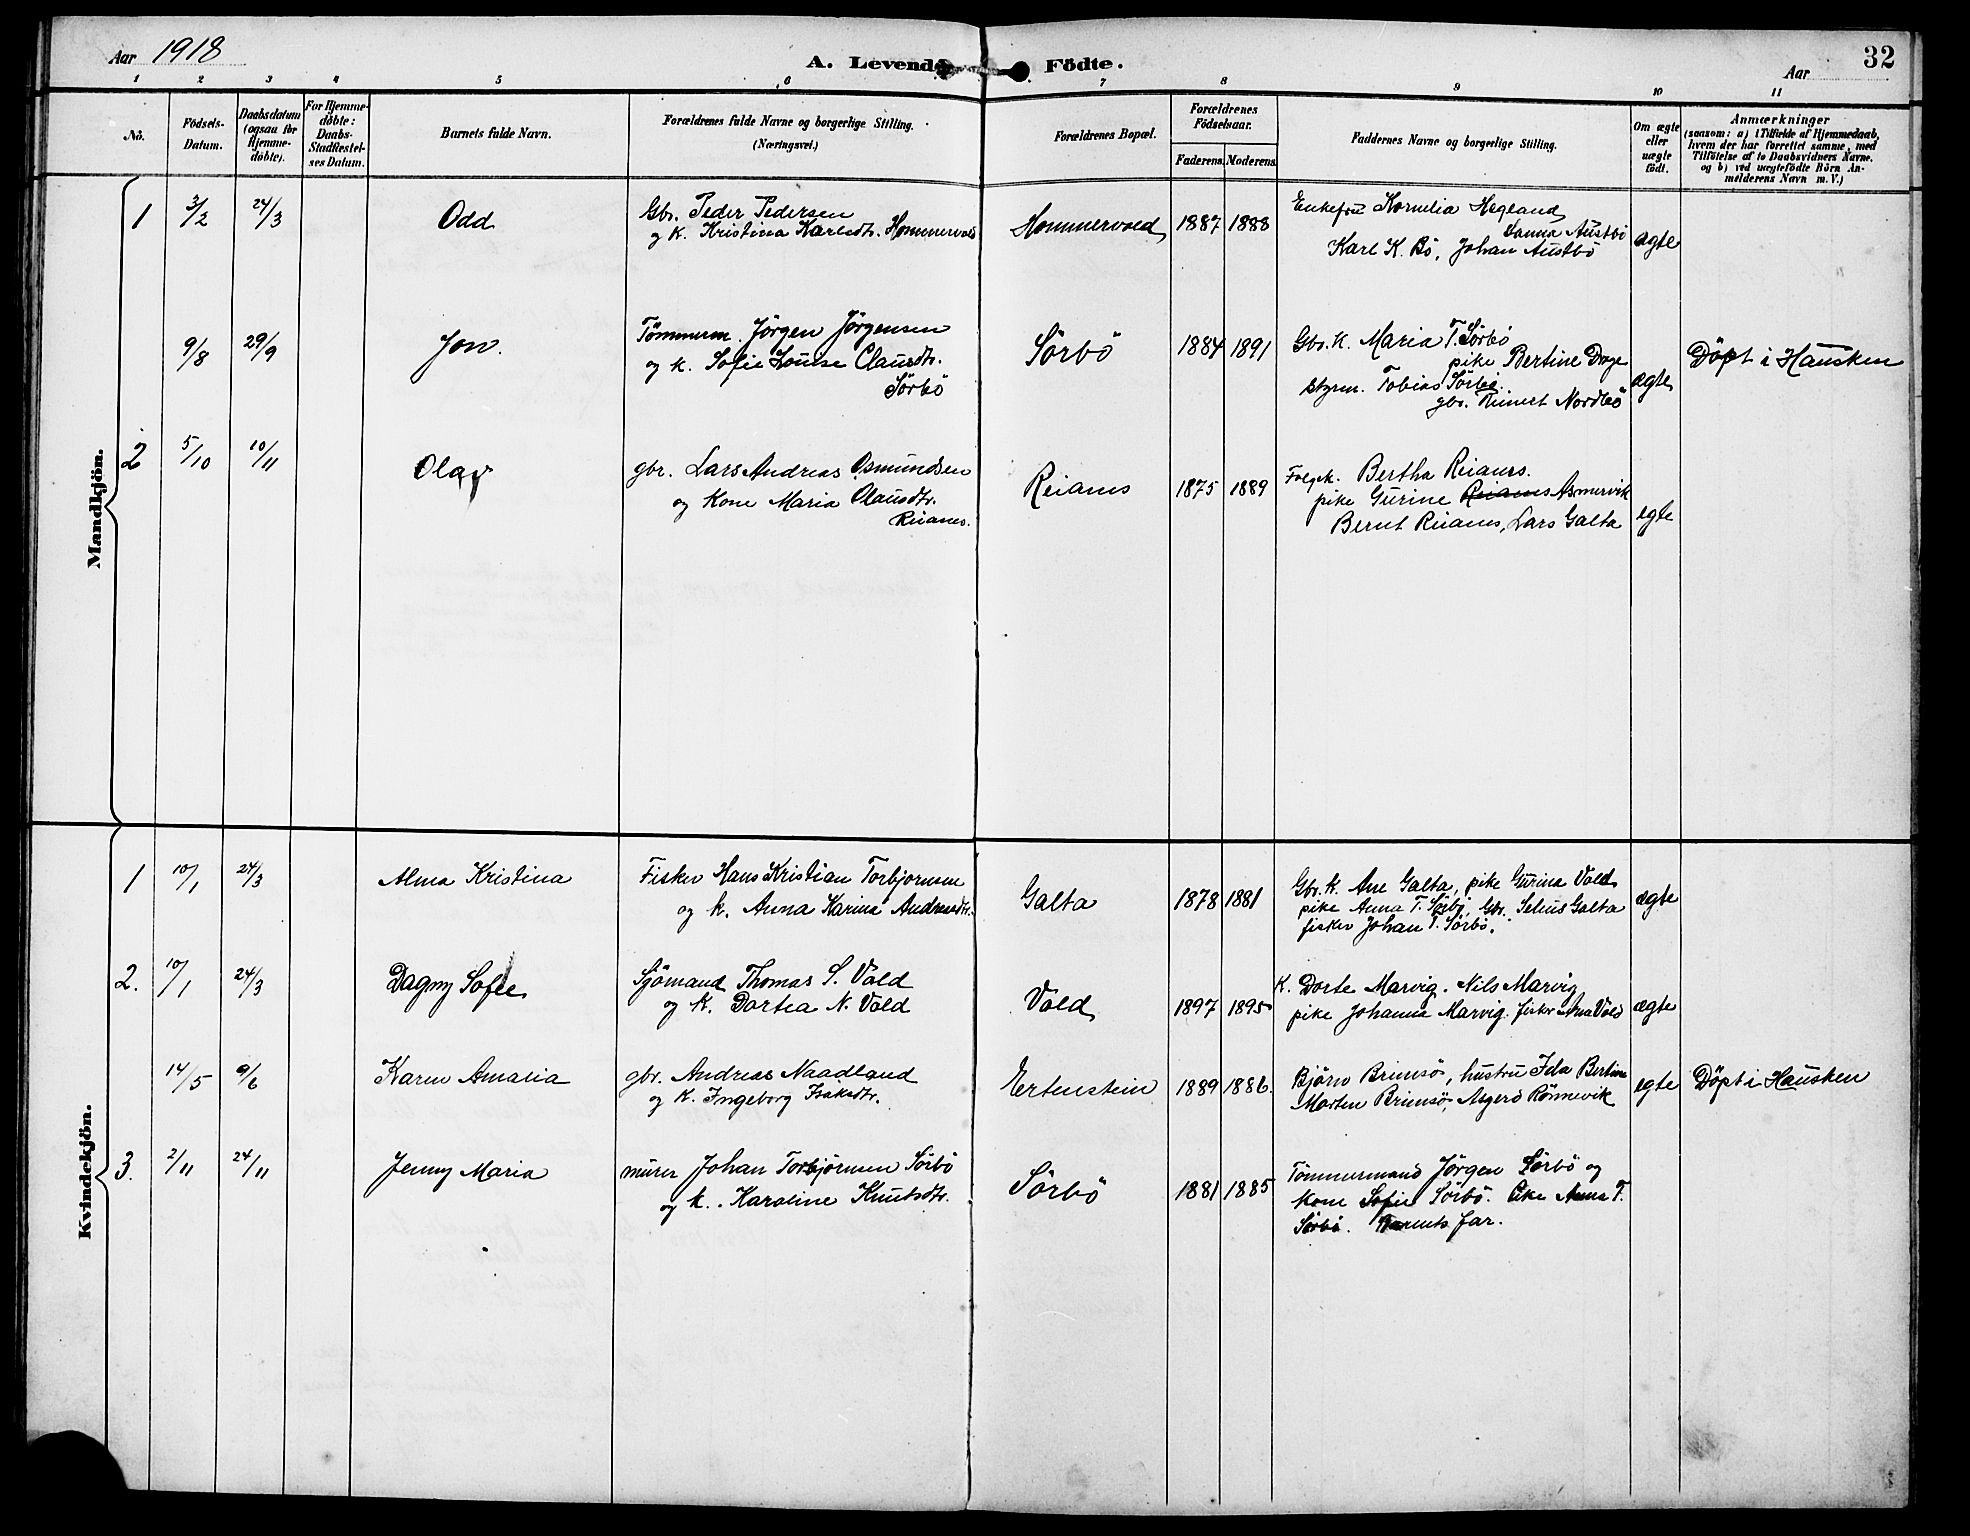 Aar 1918
A. Levende Födte.
Aar
32
1 2 3 4 5 6 7 8 9 10 11
No.
Födsels-
Datum.
Daabsdatum
(ogsaa for
Hjemme-
döbte).
For Hjemme-
döbte:
Daabs-
Stadfæstel-
ses Datum.
Barnets fulde Navn.
Forældrenes fulde Navne og borgerlige Stilling.
(Næringsvei.)
Forældrenes Bopæl.
Forældrenes
Födselsaar.
Faderens. Moderens.
Faddernes Navne og borgerlige Stilling.
Om ægte
eller
uægte
födt.
Anmærkninger
(saasom: a) i Tilfælde af Hjemmedaab,
hvem der har forrettet samme, med
Tilföielse af to Daabsvidners Navne,
og b) ved uægtefödte Börn An-
melderens Navn m. V.)
Mandkjön.
1 3/2 24/3 Odd
Gbr. Peder Pedersen
og K. Kristina Karlsdtr. Hommervold
Hommervold 1887 1888
Enkefru Kornelia Hegland
Sanna Austbö
Karl K. Bö, Johan Austbö
ægte
9/8 29/9 Jon.
Tömmerm. Jörgen Jörgensen
og k. Sofie Louise Clausdtr.
Sörbö
Sörbö 1884 1891
Gbr. K. Maria T. Sörbö
pike Bertine Dage
styrm. Tobias Sörbö.
gbr. Reinert Nordbö
ægte
Döpt i Hausken
2 5/10 10/11 Olav
gbr. Lars Andreas Osmundsen
og Kone Maria Olausdtr.
Reianes.
Reianes 1875 1889
Folgek. Bertha Reianes.
pike Gurine Reianes Asmervik
Bernt Reianes, Lars Galta
egte
Kvindekjön.
1 10/1 24/3 Alma Kristina
Fisker Hans Kristian Torbjornsen
og k. Anna Karina Andreasdtr.
Galta 1878 1881
Gbr. K. Ane Galta, pike Gurina Vold
pike Anna T. Sörbö, Gbr. Selius Galta
fisker Johan T. Sörbö.
ægte
2. 10/1 24/3 Dagny Sofie
Sjömand Thomas S. Vold
og k. Dortea N. Vold
Vold 1897 1895
K. Dorte Marvig. Nils Marvig
pike Johanna Marvig. fisker Vold
ægte
14/5 9/6 Karen Amalia
gbr. Andreas Naadland
og K. Ingeborg Isaksdtr.
Ertenstein 1889 1886.
Björn Brimsö, hustru Ida Bertine
Morten Brimsö, Asgerd Rönnevik
egte
Döpt i Hausken
3. 2/11 24/11 Jenny Maria
murer Johan Torbjörnsen Sörbö
og k. Karoline Knutsdtr.
Sörbö 1881 1885
Tömmermand Jörgen Sörbö og
kone Sofie Sörbö. Pike Anna T.
Sörbö. Barnets far.